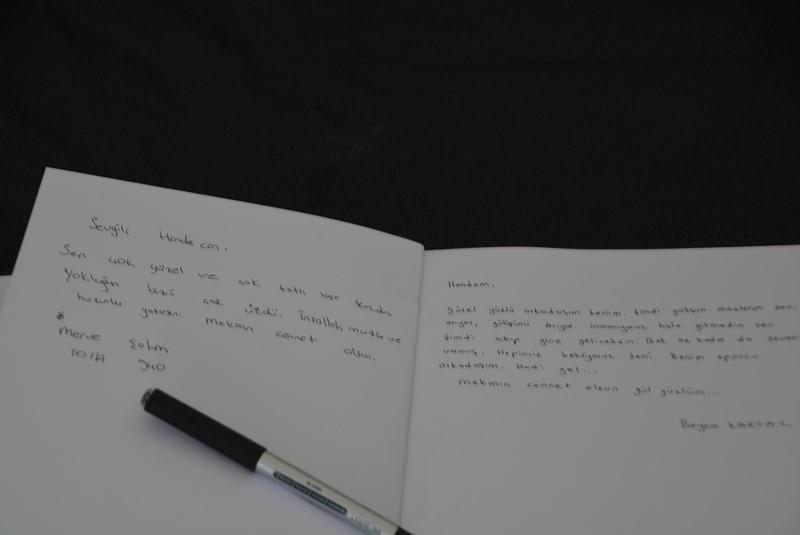 Sevgili Hande can.
Sen çok güzel ve çok tatlı bir
Yokluğun bizi çok üzdü. İnşallah mutlu ve
huzurlu yatarsın. Mekanın cennet olsun.
Merve Şahin
10/A 940
Handem,
Güzel gözlü arkadaşım benim. Şimdi yoksun. Gözlerim seni
arıyor, gülüşünü arıyor. İnanmıyoruz hala gitmedin sen.
Şimdi gine geleceksin. Bak ne kadar da seveni
varmış. Hepimiz bekliyoruz seni. Benim
arkadaşım. Hadi gel...
Mekanın cennet olsun gül yüzlüm...